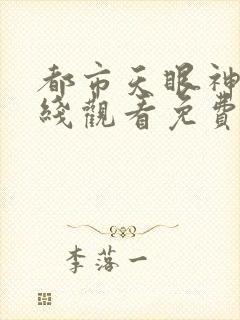 都市天眼神
綫觀看免費
李落一